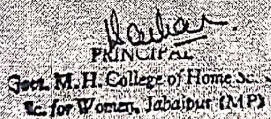 PRINCIPAL
Govt. M.H. College of Home Sc.
for Women, Jabalpur (M.P.)